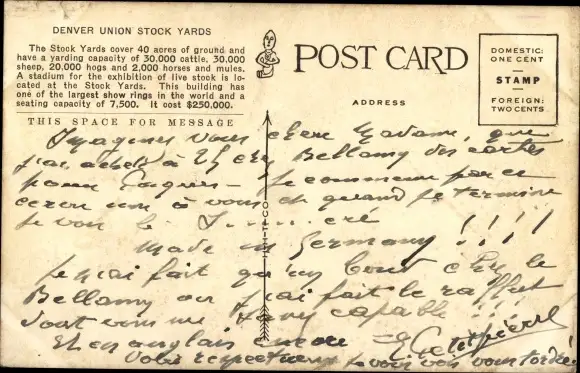 DENVER UNION STOCK YARDS
The Stock Yards cover 40 acres of ground and
have a yarding capacity of 30,000 cattle, 30,000
sheep, 20,000 hogs and 2,000 horses and mules.
A stadium for the exhibition of live stock is lo-
cated at the Stock Yards. This building has
one of the largest show rings in the world and a
seating capacity of 7,500. It cost $250,000.
THIS SPACE FOR MESSAGE
POST CARD
ADDRESS
DOMESTIC:
ONE CENT
STAMP
FOREIGN:
TWO CENTS
Imaginez vous chère Madame, que
j'ai acheté à Bellamy des cartes
pour Je commence par en
à vous et quand je termine
je vois
Made in Germany !!!!
Je n'ai fait qu'un bond chez le
Bellamy ou j'ai fait le raffut
dont vous me capable !!!
Et en anglais encore
Votre je vois vous tordre!